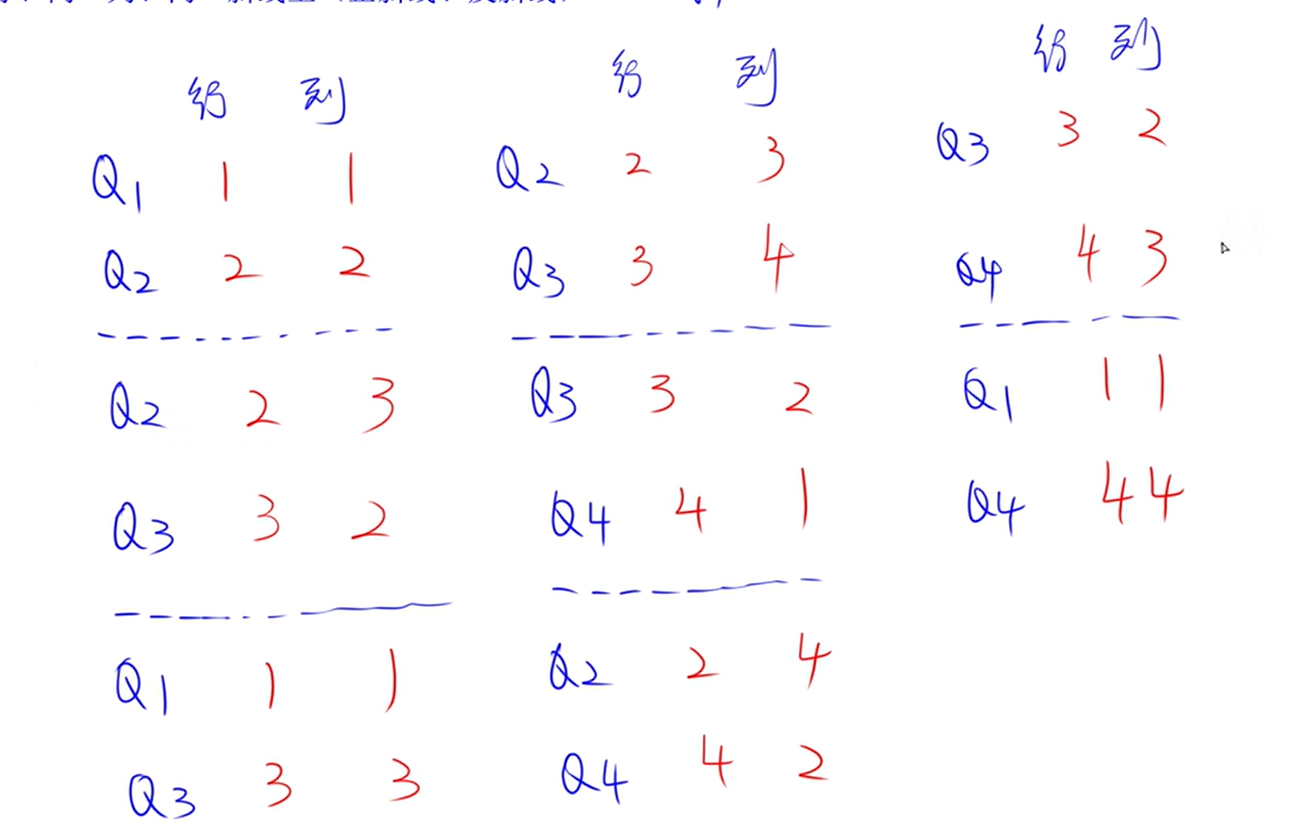 行 列
Q1 1 1
Q2 2 2
Q2 2 3
Q3 3 2
Q1 1 1
Q3 3 3
行 列
Q2 2 3
Q3 3 4
Q3 3 2
Q4 4 1
Q2 2 4
Q4 4 2
行 列
Q3 3 2
Q4 4 3
Q1 1 1
Q4 4 4